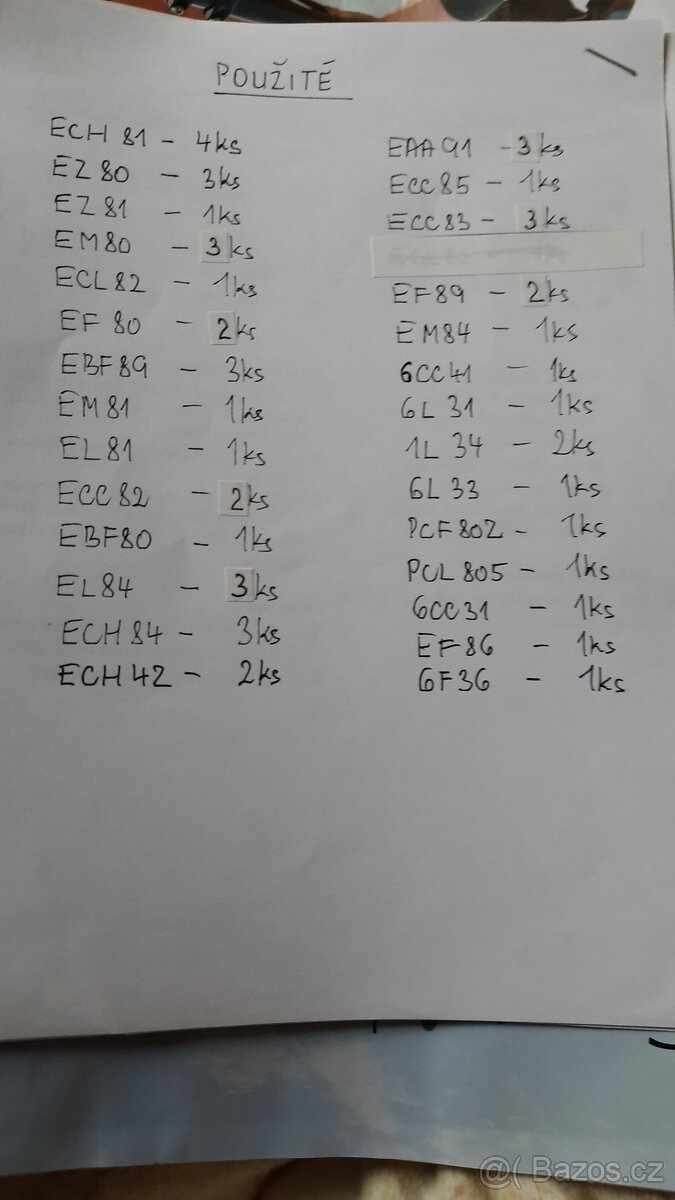 POUŽITÉ
ECH 81 - 4ks
EZ 80 - 3ks
EZ 81 - 1ks
EM80 - 3ks
ECL 82 - 1ks
EF 80 - 2ks
EBF89 - 3ks
EM81 - 1ks
EL81 - 1ks
ECC 82 - 2ks
EBF80 - 1ks
EL84 - 3ks
ECH 84 - 3ks
ECH 42 - 2ks
EAA91 - 3ks
ECC85 - 1ks
ECC83 - 3ks
EF89 - 2ks
EM84 - 1ks
6CC41 - 1ks
6L 31 - 1ks
1L 34 - 2ks
6L 33 - 1ks
PCF802 - 1ks
PCL 805 - 1ks
6CC31 - 1ks
EF86 - 1ks
6F36 - 1ks
@( Bazos.cz